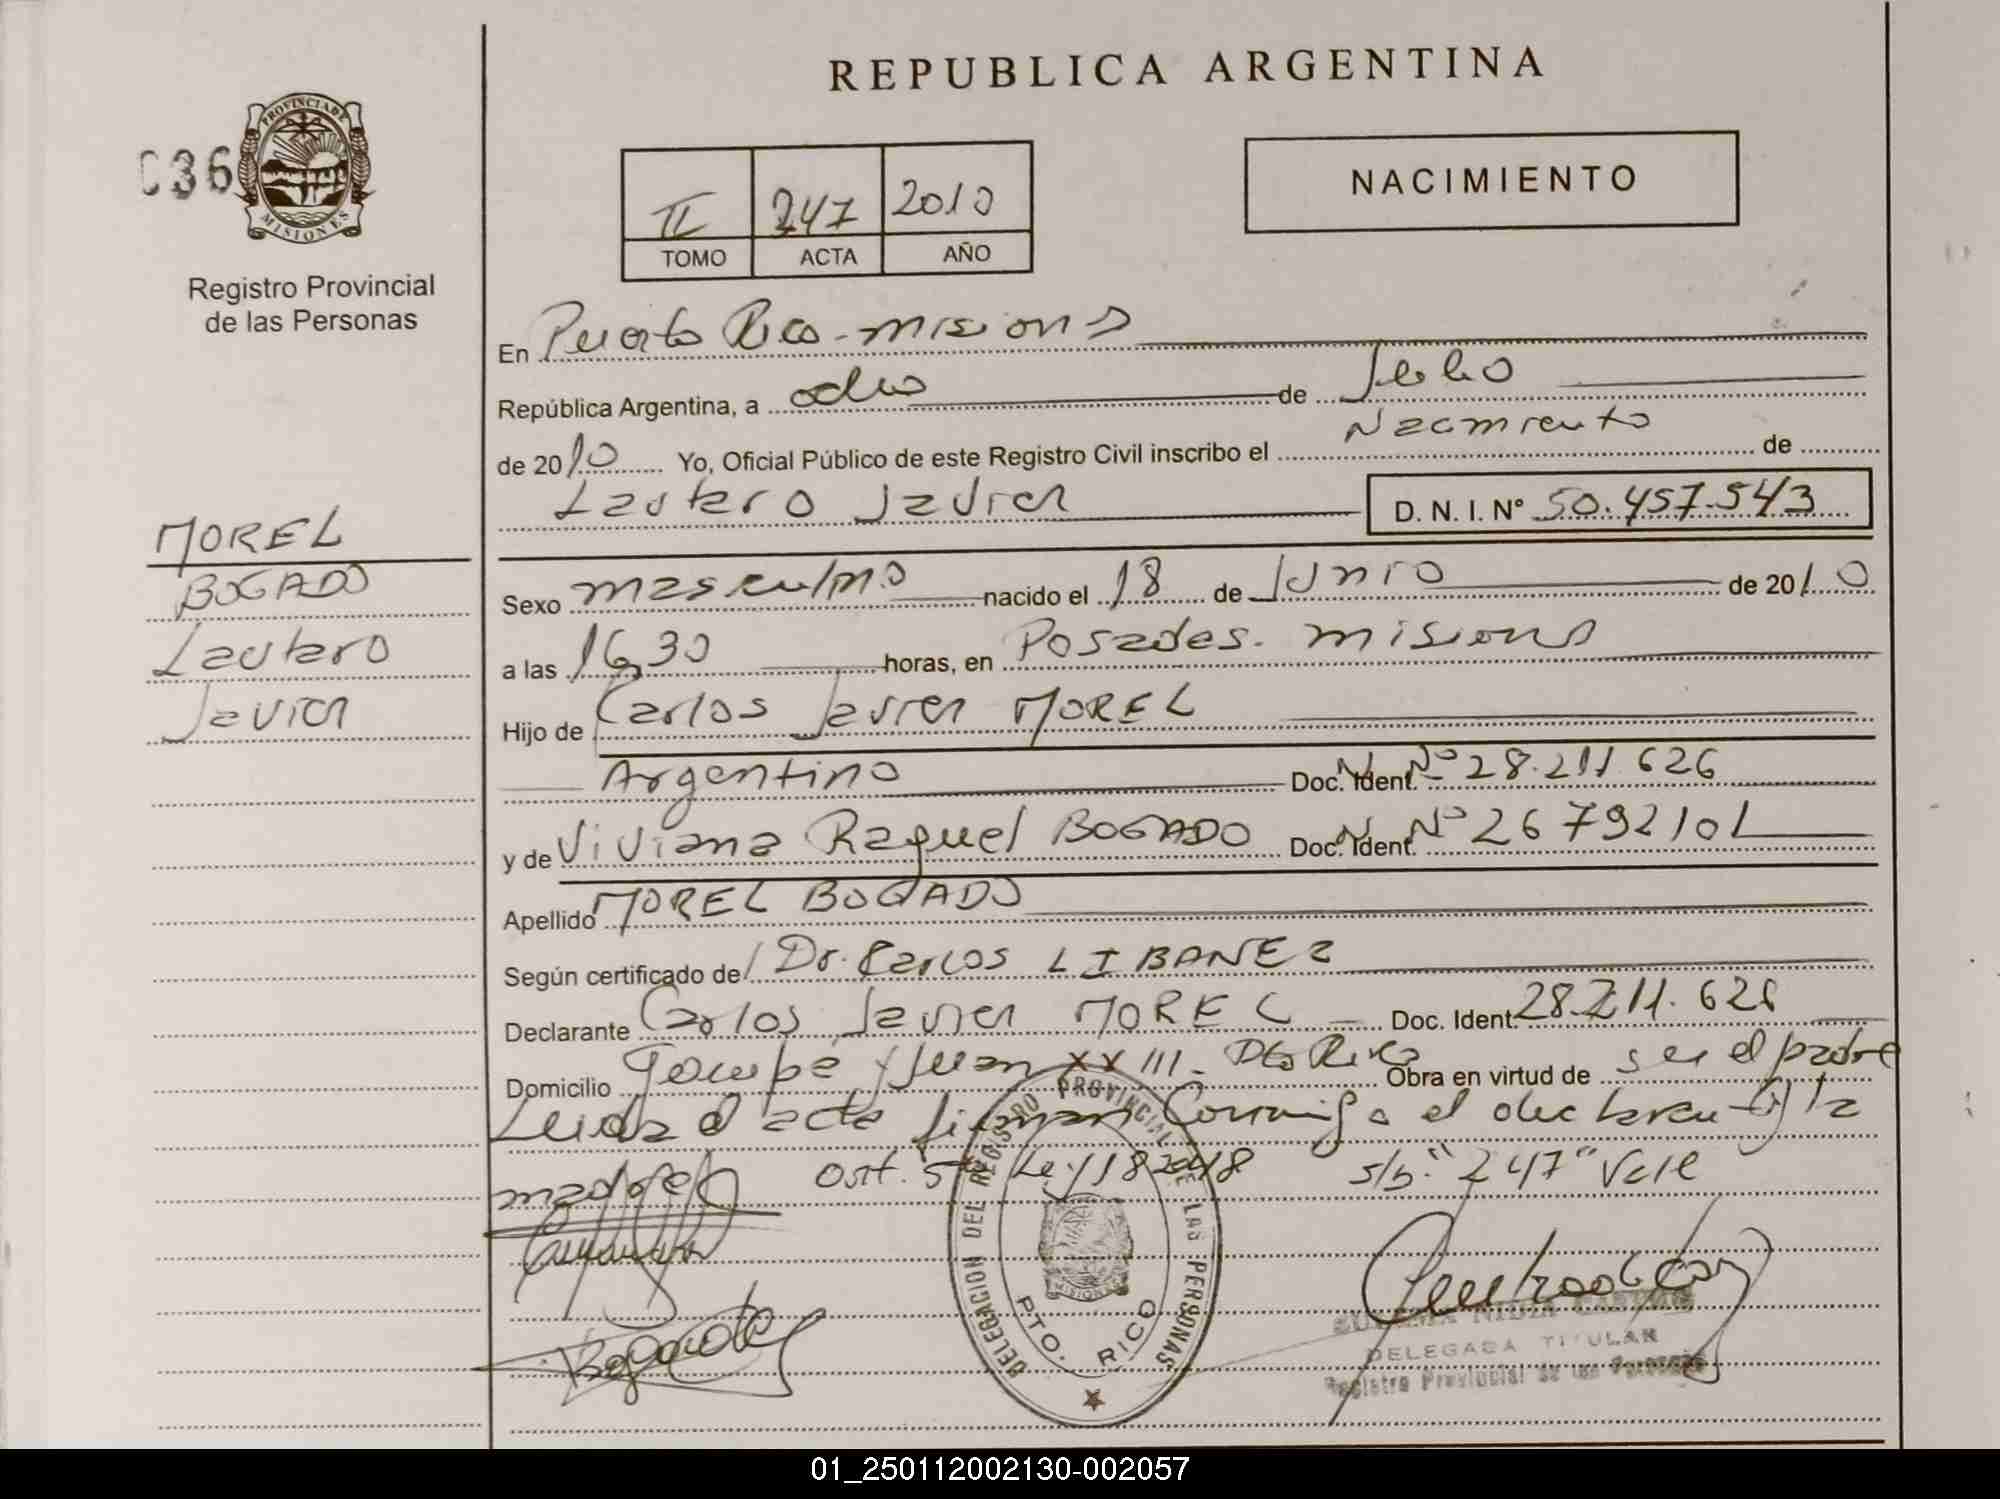 REPUBLICA ARGENTINA
036
PROVINCIA DE
MISIONES
Registro Provincial
de las Personas
II 247 2010
TOMO ACTA AÑO
NACIMIENTO
En Puerto Rico - misiones
República Argentina, a ocho de Julio
de 2010 Yo, Oficial Público de este Registro Civil inscribo el Nacimiento de
Lautaro Javier D. N. I. Nº 50.457.543
MOREL
BOGADO
Lautaro
Javier
Sexo masculino nacido el 18 de Junio de 2010
a las 16,30 horas, en Posadas. misiones
Hijo de Carlos Javier MOREL
Argentino Doc. Ident. Nº 28.211.626
y de Viviana Raquel BOGADO Doc. Ident. Nº 26792101
Apellido MOREL BOGADO
Según certificado de Dr. Carlos LIBANEZ
Declarante Carlos Javier MOREL Doc. Ident. 28.211.626
Domicilio y Juan XXIII - Pto Rico Obra en virtud de ser el padre
Leida el acta firman Conmigo el declarante y la
madre Ley 18248 s/b. "247" Vale
DELEGACION DEL REGISTRO PROVINCIAL DE LAS PERSONAS
PTO. RICO
DELEGADA TITULAR
Registro Provincial de las Personas
01_250112002130-002057